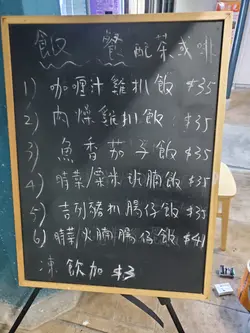 飲 餐 配茶或啡
1) 咖喱汁雞扒飯 $35
2) 肉燥雞扒飯 $35
3) 魚香茄子飯 $35
4) 時菜/粟米斑腩飯 $35
5) 吉列豬扒腸仔飯 $35
6) 時菜/火腩腸仔飯 $41
凍飲加 $3